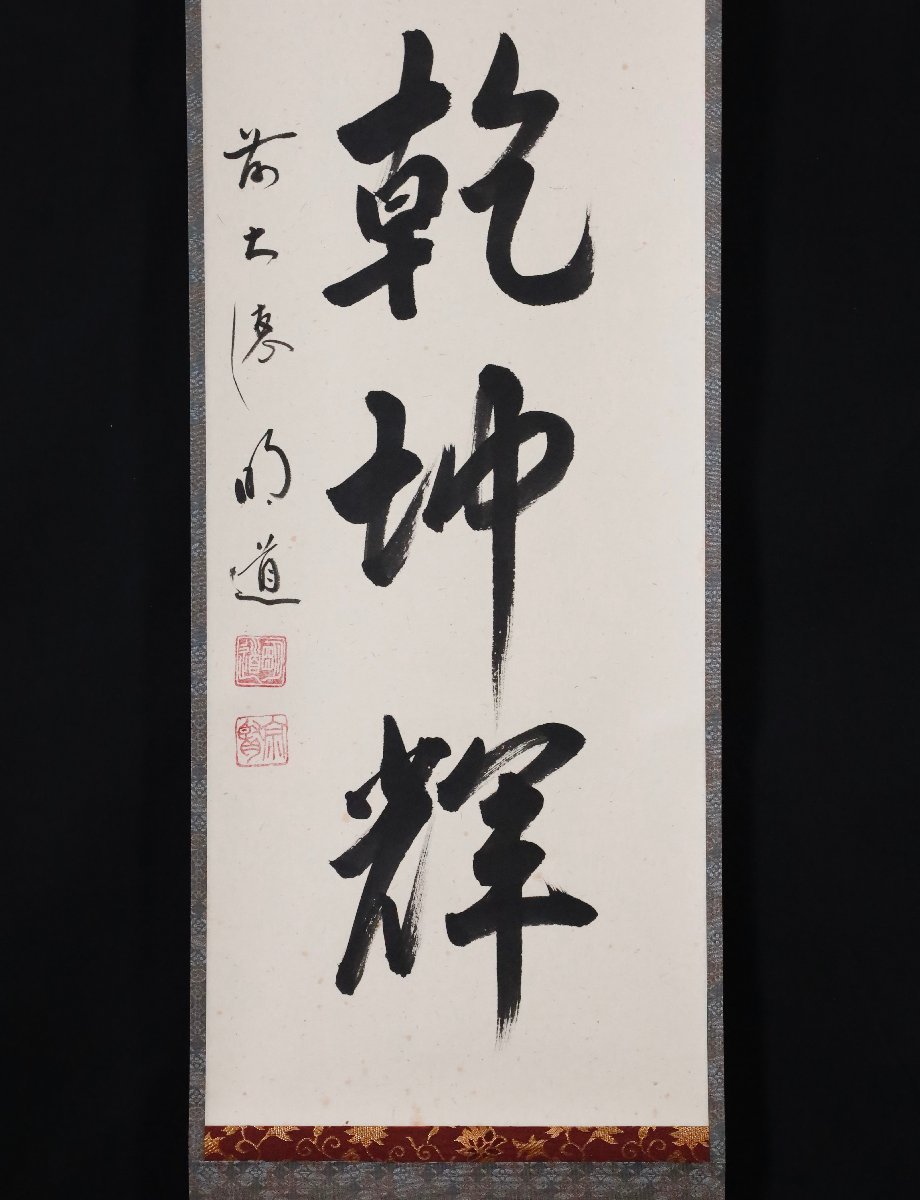 乾坤輝
前大徳明道